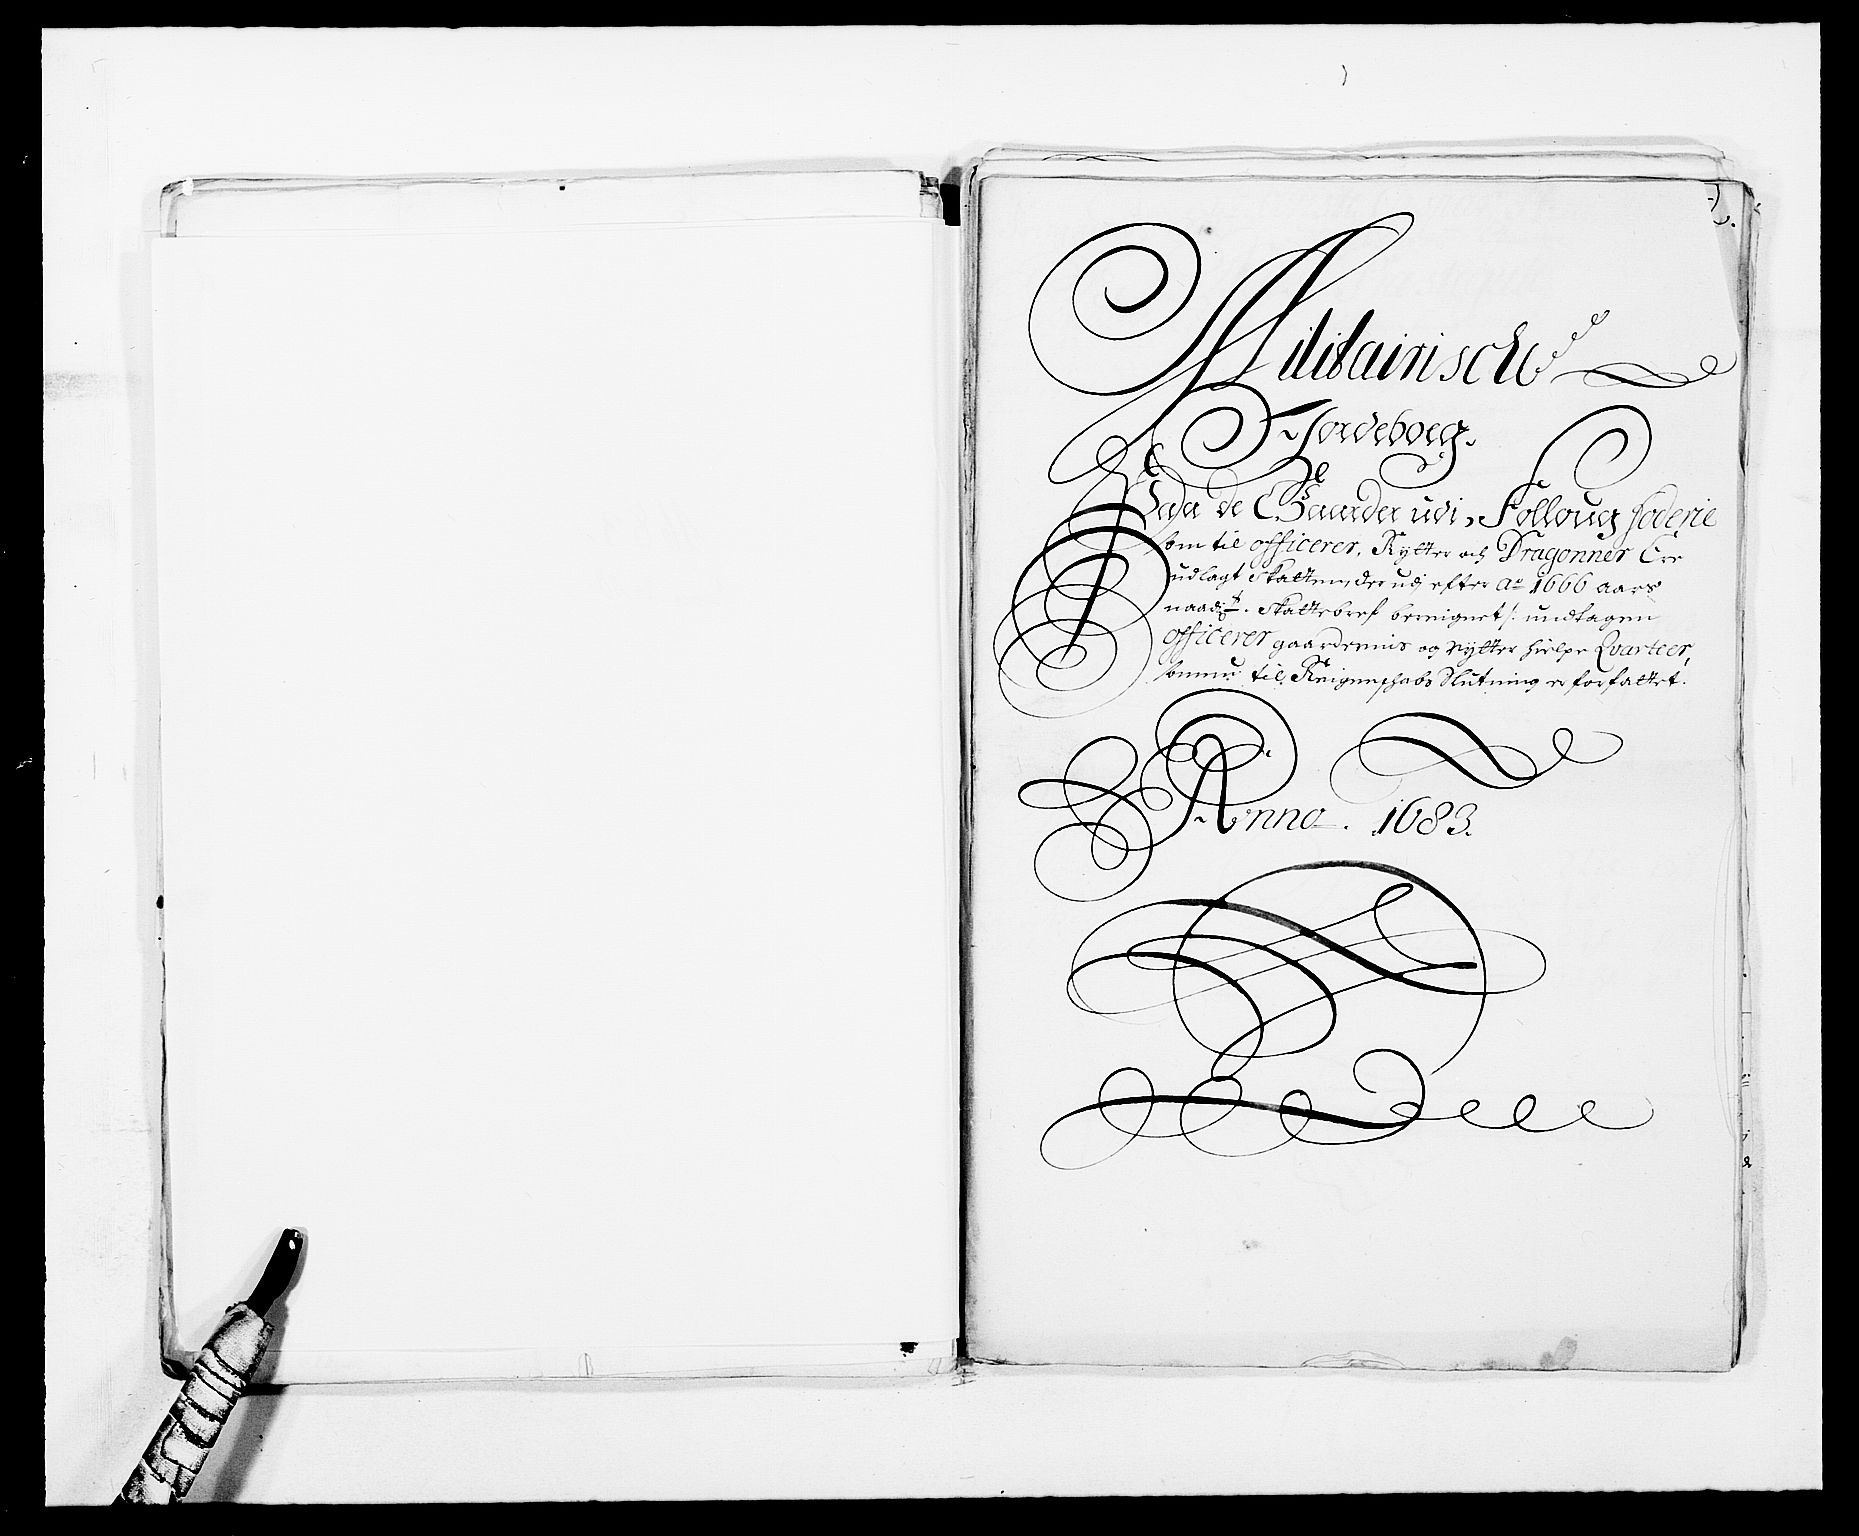 Militairische
Jordeboeg.
Paa de Gaarder udi Folloug foderie
som til officerer, Rytter och Dragonner Ere
udlagt Skatten der udj efter ao 1666 aars
naadst. Skattebref bereignet /: undtagen
officerer gaardernis og Rytter hielpe Qvarteer,
til Reignschabs Slutning er forfattet.
Anno. 1683.